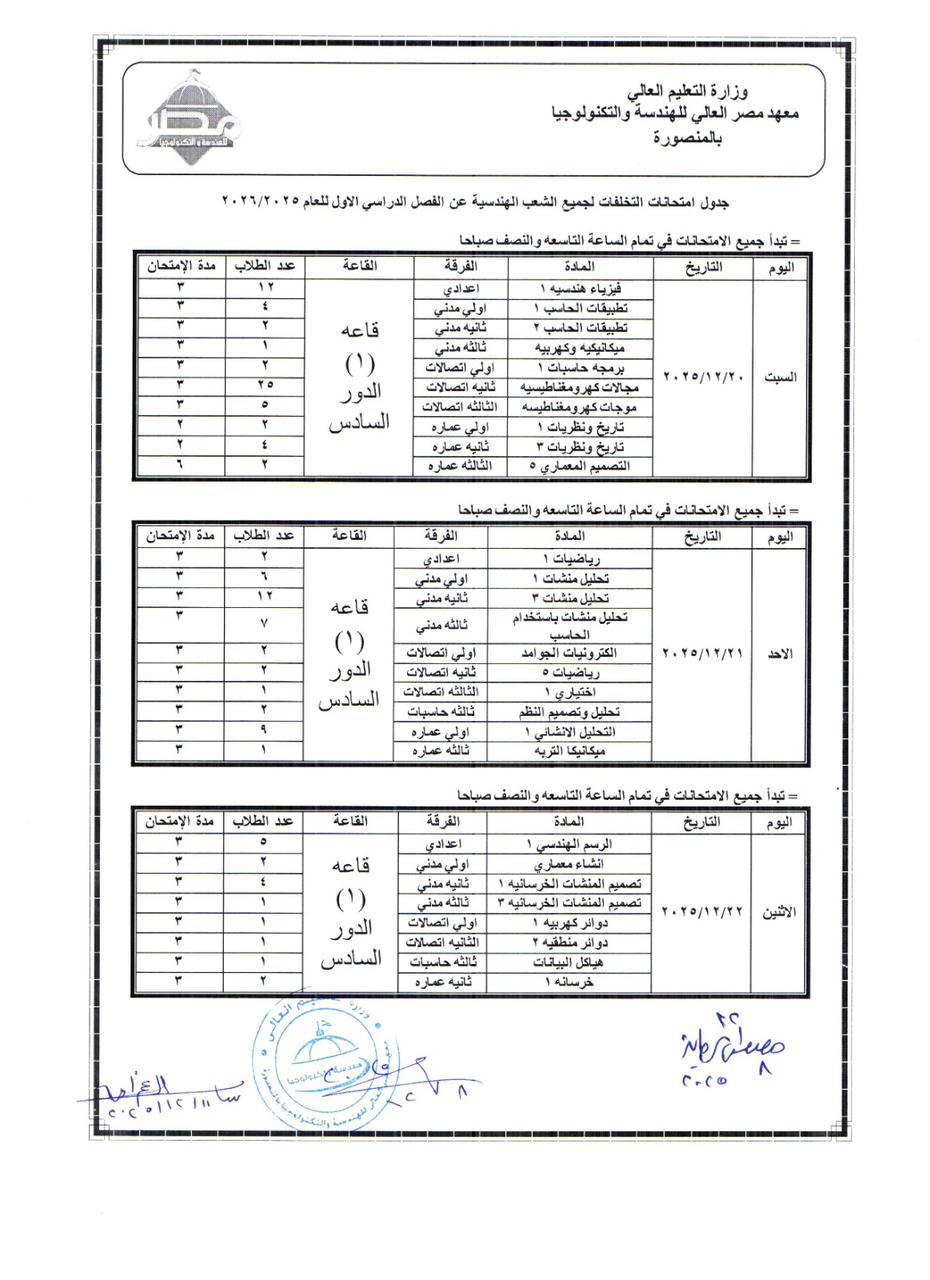 وزارة التعليم العالي
معهد مصر العالي للهندسة والتكنولوجيا
بالمنصورة
مصر
للهندسة والتكنولوجيا
جدول امتحانات التخلفات لجميع الشعب الهندسية عن الفصل الدراسي الاول للعام ٢٠٢٦/٢٠٢٥
= تبدأ جميع الامتحانات في تمام الساعة التاسعه والنصف صباحا
اليوم التاريخ المادة الفرقة القاعة عدد الطلاب مدة الإمتحان
السبت ٢٠٢٥/١٢/٢٠ قاعه (١) الدور السادس
فيزياء هندسيه ١ اعدادي ١٢ ٣
تطبيقات الحاسب ١ اولي مدني ٤ ٣
تطبيقات الحاسب ٢ ثانيه مدني ٢ ٣
ميكانيكيه وكهربيه ثالثه مدني ١ ٣
برمجه حاسبات ١ اولي اتصالات ٢ ٣
مجالات كهرومغناطيسيه ثانيه اتصالات ٢٥ ٣
موجات كهرومغناطيسه الثالثه اتصالات ٥ ٣
تاريخ ونظريات ١ اولي عماره ٢ ٢
تاريخ ونظريات ٣ ثانيه عماره ٤ ٢
التصميم المعماري ٥ الثالثه عماره ٢ ٦
= تبدأ جميع الامتحانات في تمام الساعة التاسعه والنصف صباحا
اليوم التاريخ المادة الفرقة القاعة عدد الطلاب مدة الإمتحان
الاحد ٢٠٢٥/١٢/٢١ قاعه (١) الدور السادس
رياضيات ١ اعدادي ٢ ٣
تحليل منشات ١ اولي مدني ٦ ٣
تحليل منشات ٣ ثانيه مدني ١٢ ٣
تحليل منشات باستخدام الحاسب ثالثه مدني ٧ ٣
الكترونيات الجوامد اولي اتصالات ٢ ٣
رياضيات ٥ ثانيه اتصالات ٢ ٣
اختياري ١ الثالثه اتصالات ١ ٣
تحليل وتصميم النظم ثالثه حاسبات ٢ ٣
التحليل الانشائي ١ اولي عماره ٩ ٣
ميكانيكا التربه ثالثه عماره ١ ٣
= تبدأ جميع الامتحانات في تمام الساعة التاسعه والنصف صباحا
اليوم التاريخ المادة الفرقة القاعة عدد الطلاب مدة الإمتحان
الاثنين ٢٠٢٥/١٢/٢٢ قاعه (١) الدور السادس
الرسم الهندسي ١ اعدادي ٥ ٣
انشاء معماري اولي مدني ٢ ٣
تصميم المنشات الخرسانيه ١ ثانيه مدني ٤ ٣
تصميم المنشات الخرسانيه ٣ ثالثه مدني ١ ٣
دوائر كهربيه ١ اولي اتصالات ١ ٣
دوائر منطقيه ٢ الثانيه اتصالات ١ ٣
هياكل البيانات ثالثه حاسبات ١ ٣
خرسانه ١ ثانيه عماره ٢ ٣
٢٠٢٥
٢٠٢٥/١٢/١١